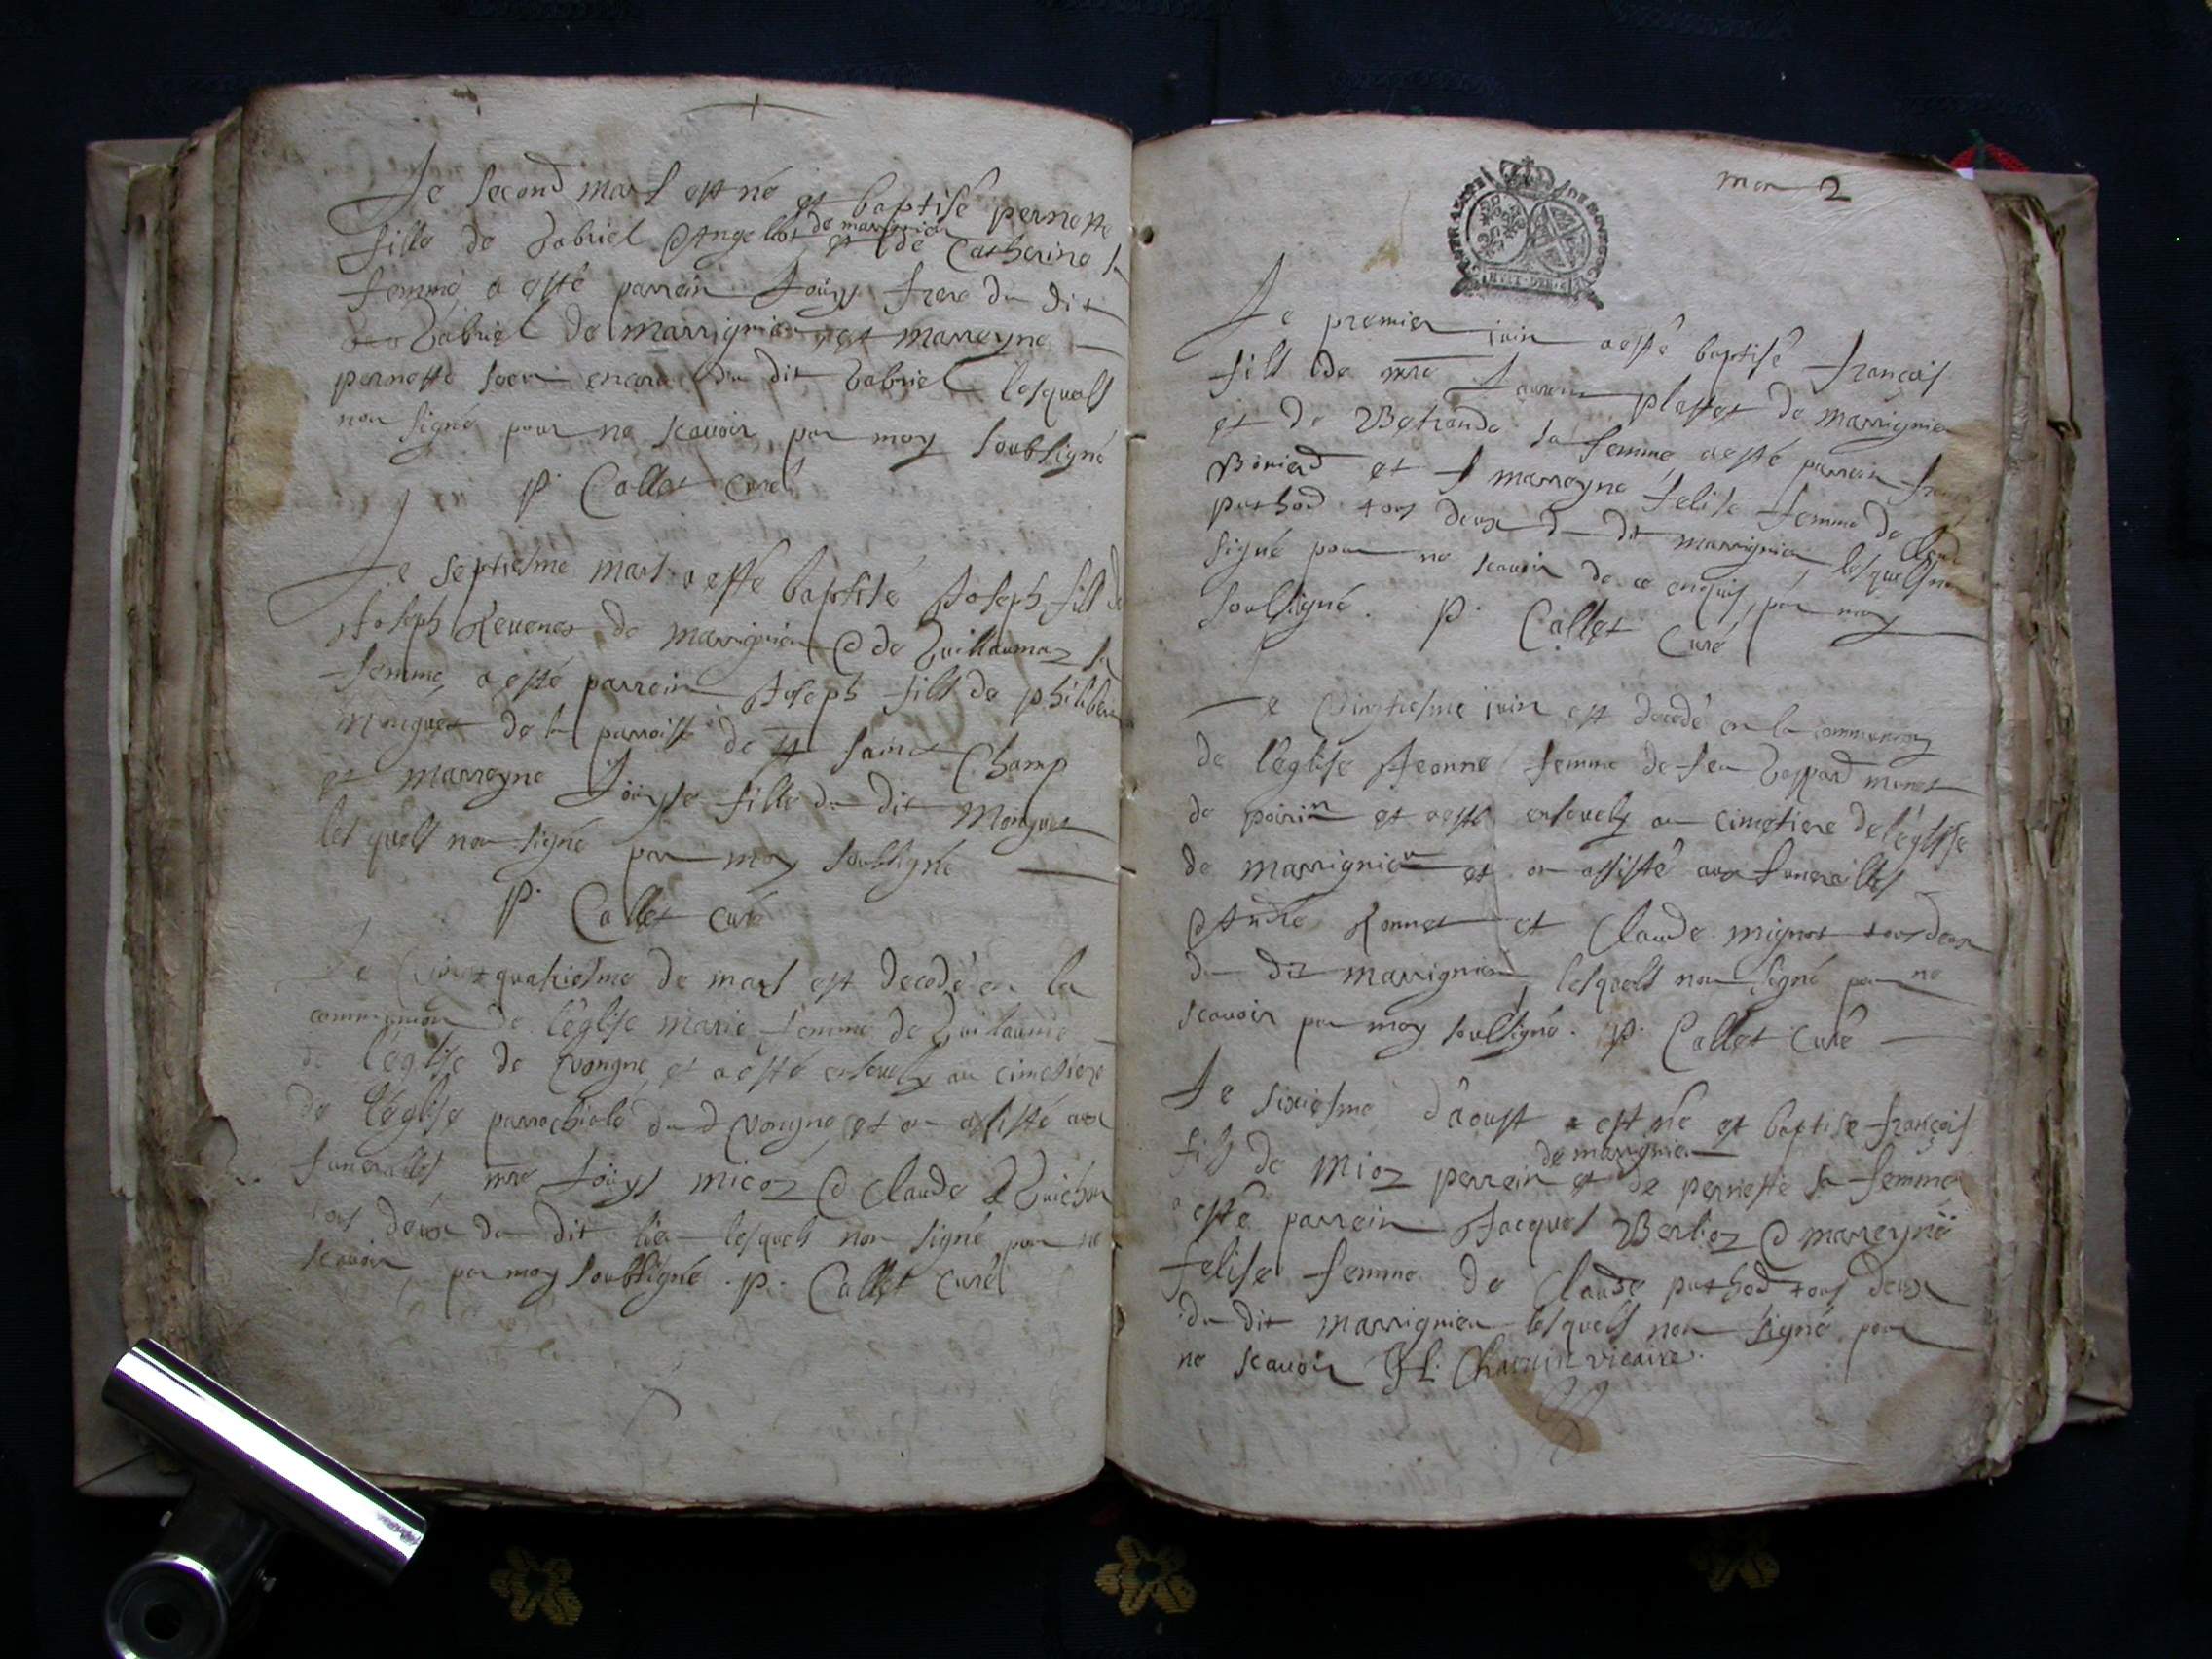 Le second mars est né et baptisé pernette
fille de Gabriel Angellot de marrignieu et de Catherine sa
femme, a esté parrein Loüys frere du dit
Gabriel de marrignieu et marreyne
pernette soeur encore du dit Gabriel lesquels
non signé pour ne scavoir par moy soubsigné
P. Callet curé
Le septiesme mars a esté baptisé Joseph fils de
Joseph de marrignieu & de Guillaumaz sa
femme, a esté parrein Joseph fils de philibert
de la parroisse de Sainct Champ
et marreyne Loüyse fille du dit
lesquels non signé par moy soubsigné
P. Callet curé
Le vingt quatriesme de mars est decedé en la
communion de l'église marie femme de Guillaume
de l'église de vongne, et a esté ensevely au cimetiere
de l'église parrochiale du d vongne, et on assisté aux
funerailles mre Loüys micoz & Claude Guichon
tous deux du dit lieu lesquels non signé pour ne
scavoir par moy soubsigné. P. Callet curé
mon 2
HUIT DEN
Le premier juin a esté baptisé françois
fils de mre Laurent plattet de marrignieu
et de sa femme, a esté parrein
et marreyne felise femme de
puthod tous deux du dit marrignieu, lesquels non
signé pour ne scavoir de ce enquis, par moy
soubsigné. P. Callet Curé
Le vingtiesme juin est decedé en la communion
de l'église Jeanne femme de feu Gaspard
de poirin et a esté ensevely au cimetiere de l'église
de marrignieu et on assisté aux funerailles
André et Claude mignot tous deux
du dit marrignieu, lesquels non signé pour ne
scavoir par moy soubsigné. P. Callet Curé
Le sixiesme d'aoust est né et baptisé françois
fils de Mioz perrein de marrignieu et de pernette sa femme
a esté parrein Jacques Berlioz & marreyne
felise femme de Claude puthod tous deux
du dit marrignieu lesquels non signé pour
ne scavoir vicaire.